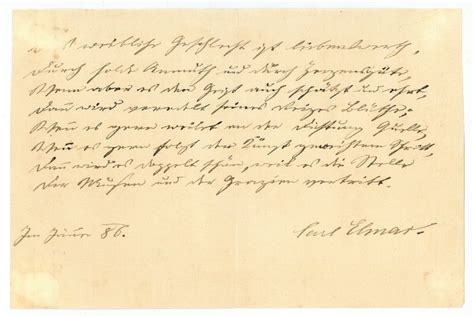 's weibliche Geschlecht ist liebenswerth,
Durch holde Anmuth und durch Herzensgüte,
Wenn aber es den Geist auch schätzt und ehrt,
Dann wird veredelt seines Reizes Blüthe;
Wenn es gern weilet an der Dichtung Quelle,
Wenn es gern folgt der Kunst geweihtem Schritt,
Dann wird es doppelt schön, weil es die Stelle
Der Musen und der Grazien vertritt.
Im Jänner 86.
Carl Elmar.